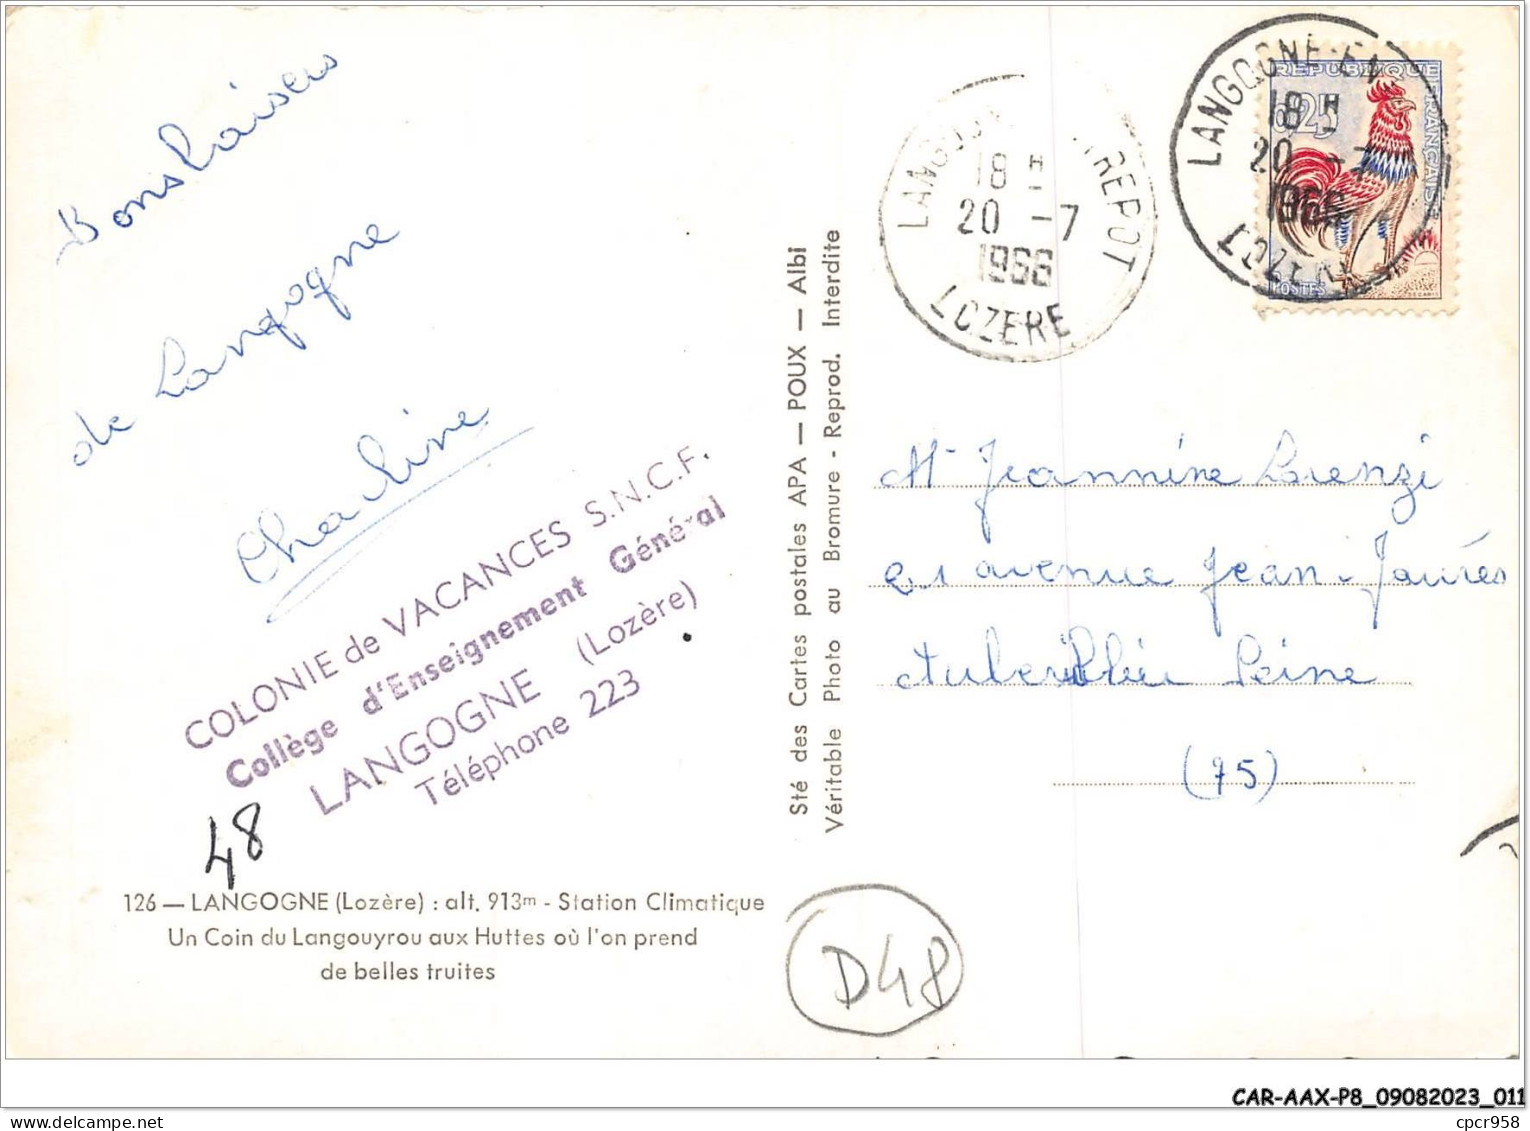 Bons baisers
de Langogne
Charline
COLONIE de VACANCES S.N.C.F.
Collège d'Enseignement Général
LANGOGNE (Lozère)
Téléphone 223
48
126 — LANGOGNE (Lozère) : alt. 913m - Station Climatique
Un Coin du Langouyrou aux Huttes où l'on prend
de belles truites
Sté des Cartes postales APA — POUX — Albi
Véritable Photo au Bromure - Reprod. Interdite
LANGOGNE ENTREPOT
18 H
20 - 7
1966
LOZERE
LANGOGNE-EN
18 H
20 - 7
1966
LOZERE
REPUBLIQUE FRANÇAISE
0,25
POSTES
DECARIS
Mr Jeannine Lorenzi
avenue Jean-Jaurès
Seine
(75)
D48
CAR-AAX-P8_09082023_011
cpcr958